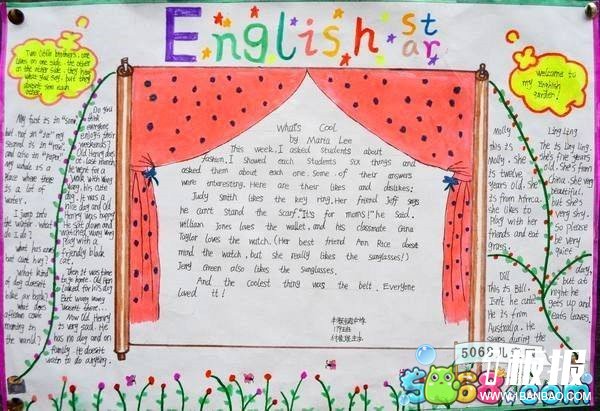 English star
Two little brothers, one
lives on one side, the other
on the other side, they hear
what you say, but they
doesn't see each
other.
Welcome to
my English
garden!
My first is in "some",
but not in "me" my
second is in "rise",
and also in "paper",
my whole is a
place where there
is a lot of
water.
I jump into
the water what
do I do?
What has ears
but can't hear?
What kind
of dog doesn't
bite or bark?
What does
afternoon come
morning in
the world?
Do you
think
everyone
enjoys their
weekends?
Old Henry does
at last month,
He went for a
walk with Wang
Wang, his cute
dog. It was a
nice day and Old
Henry was happy.
He sat down and
watched Wang Wang
play with a
friendly black
cat.
Then it was time
to go home. Old Henry
looked for his dog
But Wang Wang
wasn't there...
Now Old Henry
is very sad. He
has no dog and no
family. He doesn't
want to do anything.
What's Cool
by Maria Lee
This week, I asked students about
fashion. I showed each students six things and
asked them about each one. Some of their answers
were interesting. Here are their likes and dislikes:
Judy Smith likes the key ring. Her friend Jeff says
he can't stand the scarf. "It's for moms!" he said.
William Jones loves the wallet, and his classmate Gina
Taylor loves the watch. (Her best friend Ann Rice doesn't
mind the watch, but she really likes the sunglasses!)
Jerry Green also likes the sunglasses.
And the coolest thing was the belt. Everyone
loved it!
Molly
This is
Molly. She
is twelve
years old. She
is from Africa.
She likes to
play with her
friends and eat
grass.
Ling Ling
This is Ling Ling.
She's five years
old. She's from
China. She very
beautiful,
but she's
very shy.
So please
be very
quiet
Bill
This is Bill.
Isn't he cute?
He is from
Australia. He
sleeps during the
day,
but at
night he
gets up and
eats leaves.
WWW.1BANBAO.COM